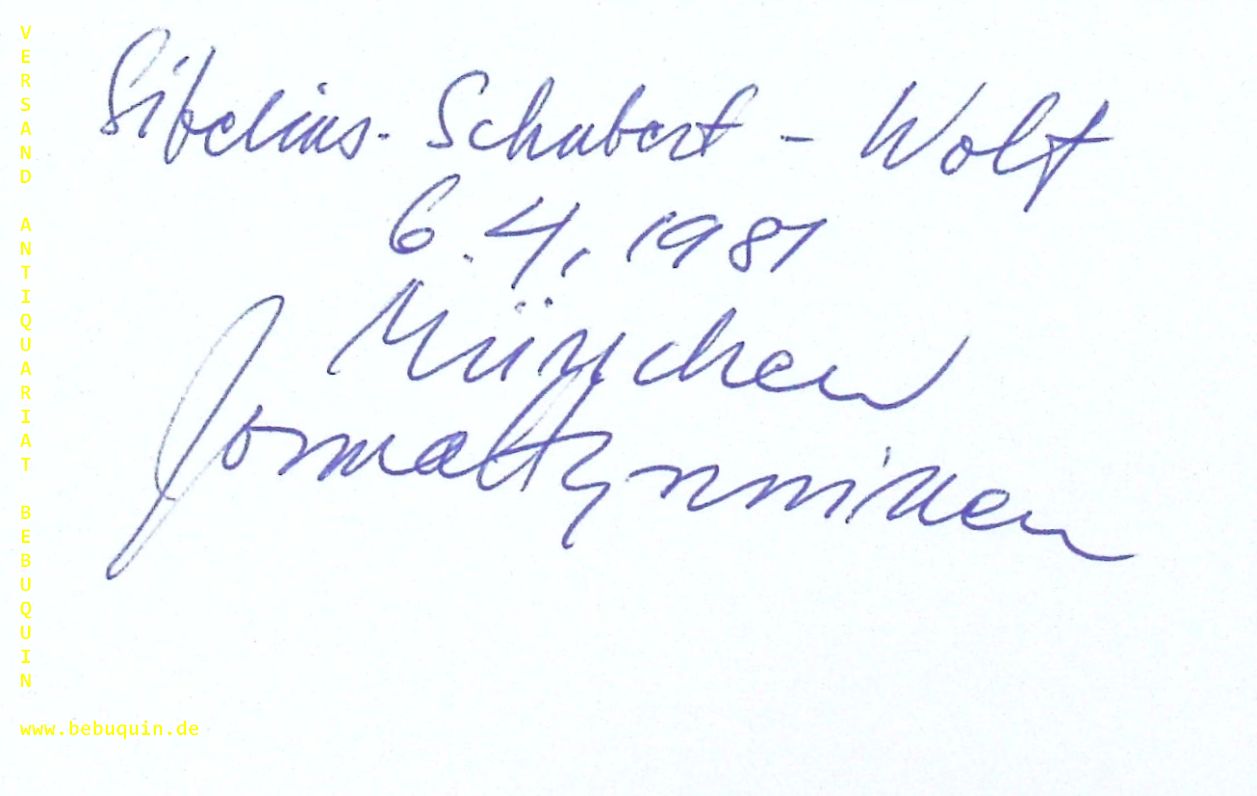 Sibelius - Schubert - Wolf
6.4.1981
München
Jorma Hynninen
VERSAND ANTIQUARIAT BEBUQUIN
www.bebuquin.de